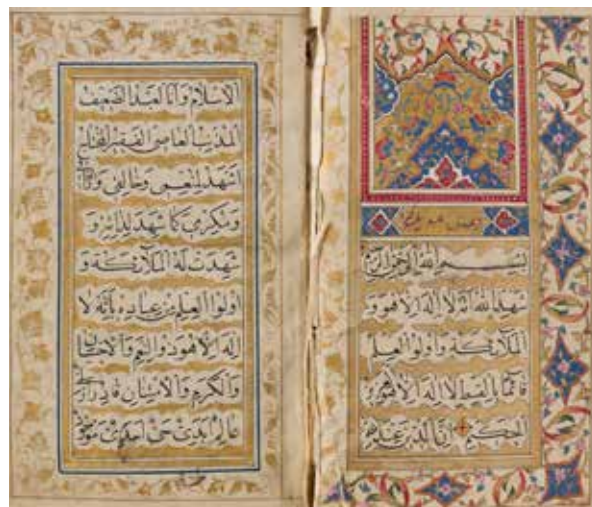 بسم الله الرحمن الرحيم
شهد الله انه لا اله الا هو و
الملائكة واولوا العلم
قائما بالقسط لا اله الا هو العزيز
الحكيم ان الدين عند الله
الاسلام وانا العبد الضعيف
المذنب العاصى الفقير المحتاج
اشهد لمنعمى وخالقى ورازقى
ومكرمى كما شهد لذاته و
شهدت له الملائكة و
اولوا العلم من عباده بانه لا
اله الا هو ذو النعم والاحسان
والكرم والامتنان قادر ازلى
عالم ابدى حى احدى موجود